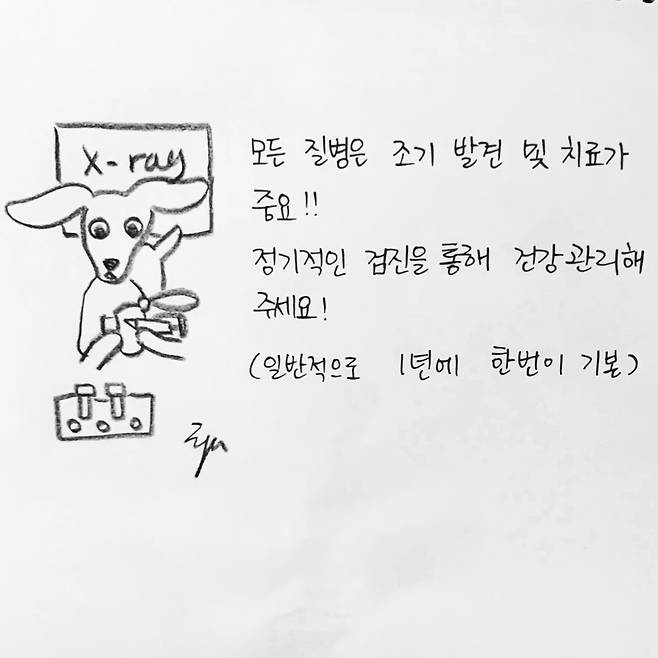 X-ray
모든 질병은 조기 발견 및 치료가
중요!!
정기적인 검진을 통해 건강관리해
주세요!
(일반적으로 1년에 한번이 기본)